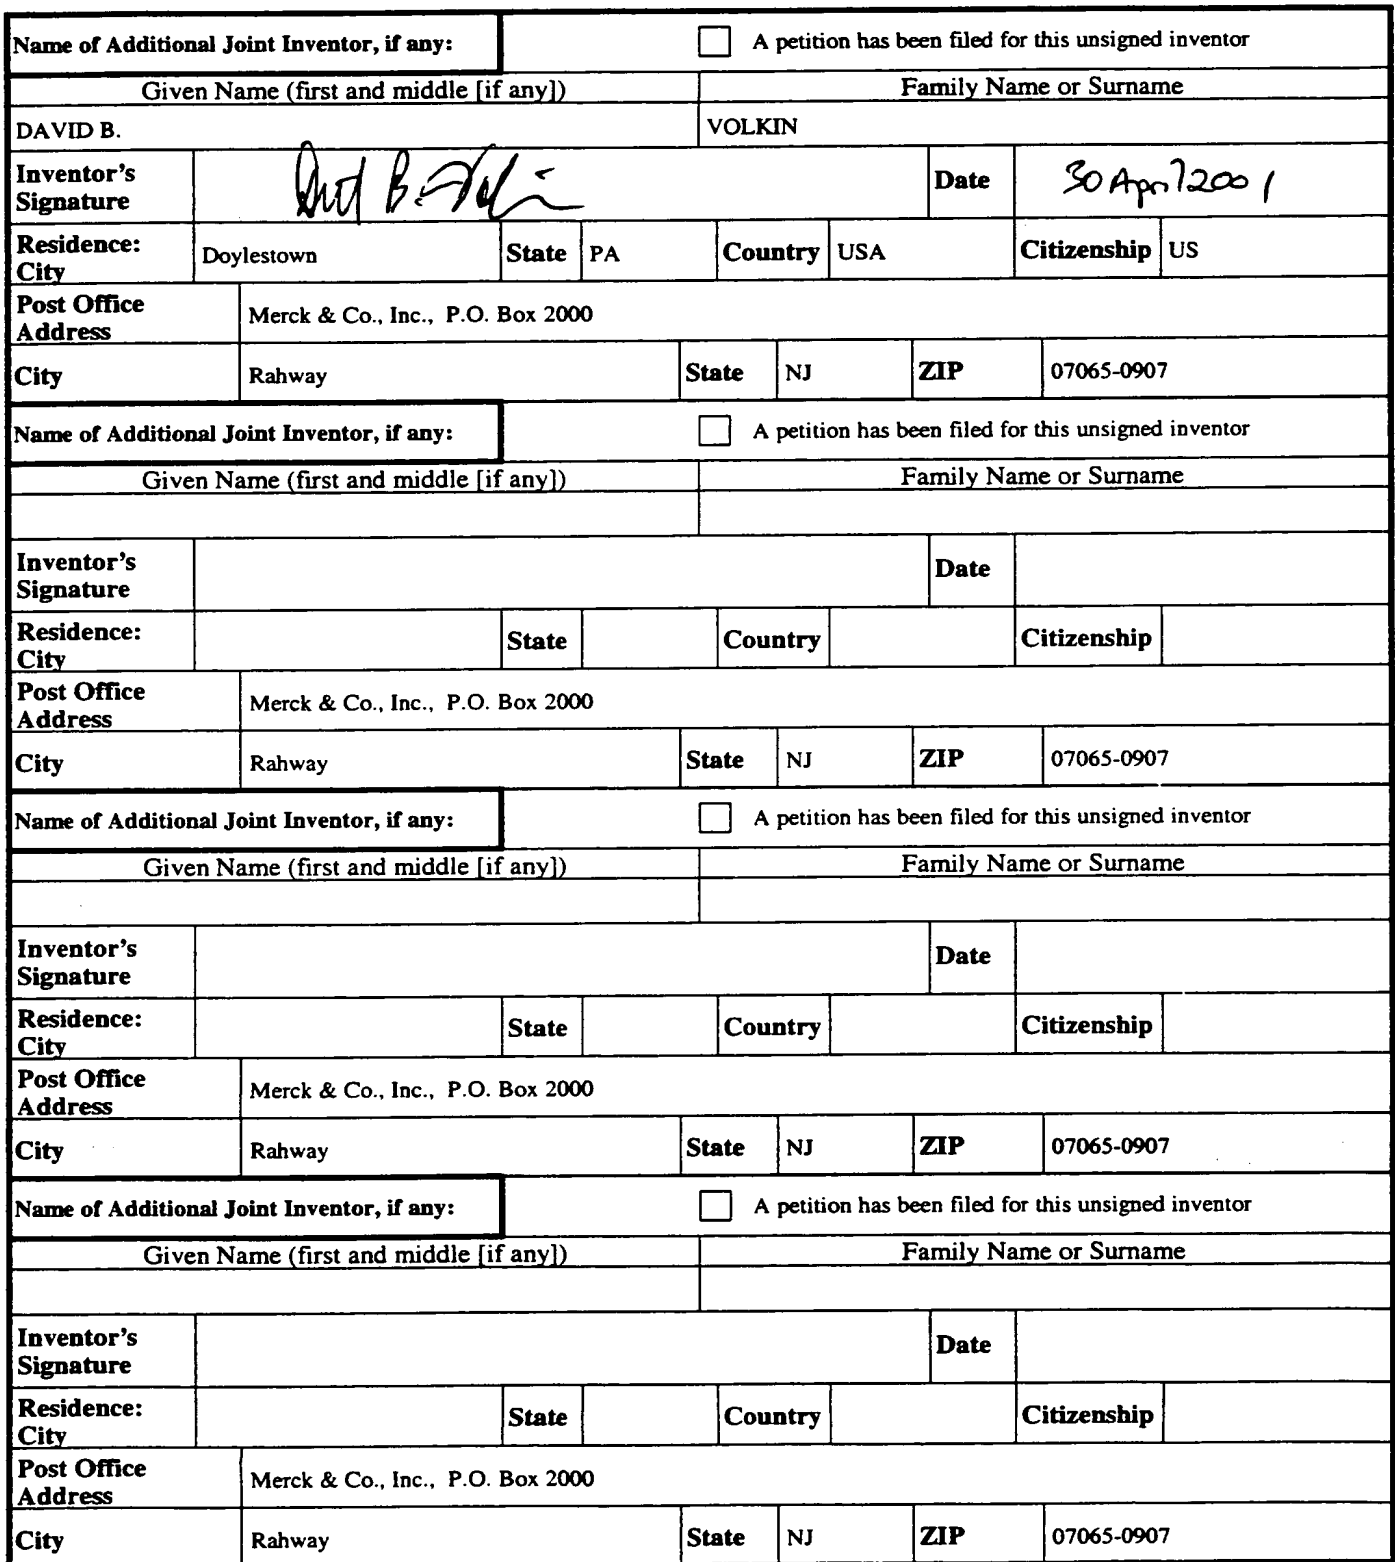 Name of Additional Joint Inventor, if any: A petition has been filed for this unsigned inventor
Given Name (first and middle [if any]) Family Name or Surname
DAVID B. VOLKIN
Inventor's Signature David B. Volkin Date 30 April 2001
Residence: City Doylestown State PA Country USA Citizenship US
Post Office Address Merck & Co., Inc., P.O. Box 2000
City Rahway State NJ ZIP 07065-0907
Name of Additional Joint Inventor, if any: A petition has been filed for this unsigned inventor
Given Name (first and middle [if any]) Family Name or Surname
Inventor's Signature Date
Residence: City State Country Citizenship
Post Office Address Merck & Co., Inc., P.O. Box 2000
City Rahway State NJ ZIP 07065-0907
Name of Additional Joint Inventor, if any: A petition has been filed for this unsigned inventor
Given Name (first and middle [if any]) Family Name or Surname
Inventor's Signature Date
Residence: City State Country Citizenship
Post Office Address Merck & Co., Inc., P.O. Box 2000
City Rahway State NJ ZIP 07065-0907
Name of Additional Joint Inventor, if any: A petition has been filed for this unsigned inventor
Given Name (first and middle [if any]) Family Name or Surname
Inventor's Signature Date
Residence: City State Country Citizenship
Post Office Address Merck & Co., Inc., P.O. Box 2000
City Rahway State NJ ZIP 07065-0907